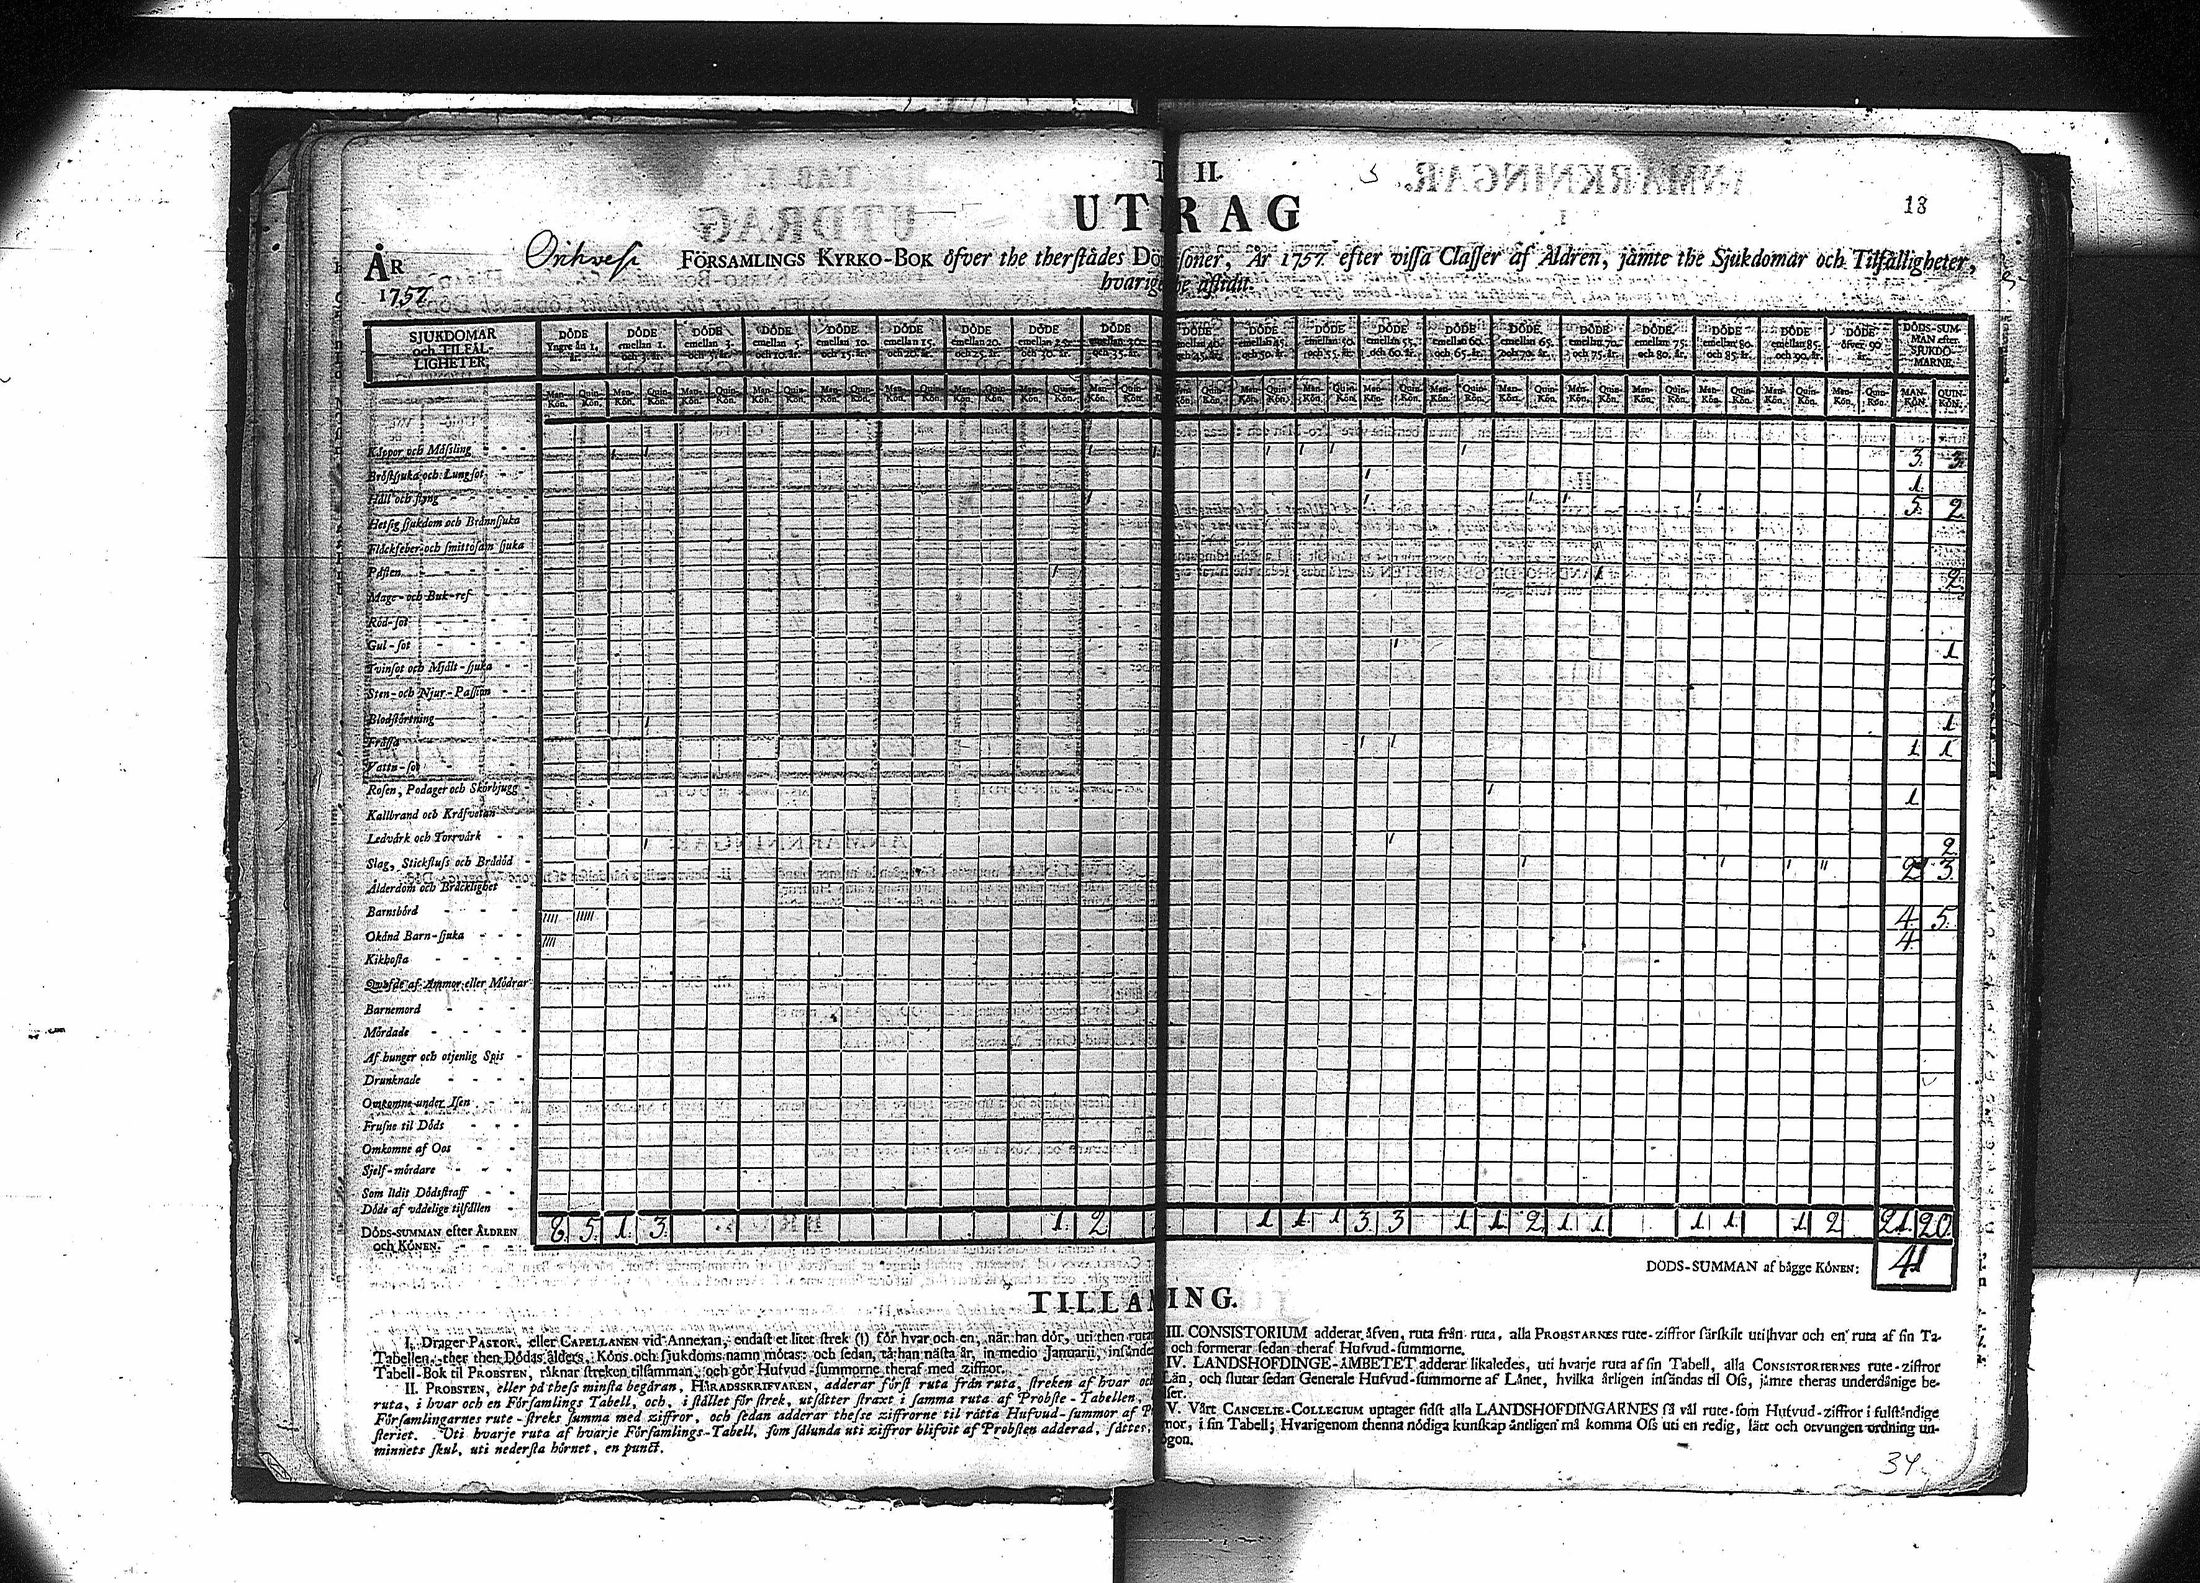 T II.
UT RAG
18
ÅR
1757.
FÖRSAMLINGS KYRKO-BOK öfver the therstädes Dö soner, År 1757. efter vissa Classer af Åldren, jämte the Sjukdomar och Tilfälligheter,
SJUKDOMAR och TILFÄLLIGHETER.
DÖDE Yngre än 1. år.
DÖDE emellan 1. och 3. år.
DÖDE emellan 3.
DÖDE emellan 5. och 10. år.
DÖDE emellan 10. och 15. år.
DÖDE emellan 15. och 20. år.
DÖDE emellan 20. och 25. år.
DÖDE
DÖDE emellan 30. och 35. år.
DÖDE
DÖDE emellan 45. och 50. år.
DÖDE emellan 50. och 55. år.
DÖDE emellan 55. och 60. år.
DÖDE emellan 60. och 65. år.
DÖDE emellan 65. och 70. år.
DÖDE emellan 70. och 75. år.
DÖDE emellan 75. och 80. år.
DÖDE emellan 80. och 85. år.
DÖDE emellan 85. och 90. år.
DÖDE öfver 90 år.
DÖDS-SUMMAN efter SJUKDOMARNE.
Man-Kön. Quin-Kön.
MAN-KÖN. QUIN-KÖN.
Koppor och Mässling 3. 3.
Bröstsjuka och Lungsot 1.
Håll och styng 5. 2
Hetsig sjukdom och Brännsjuka
Fläckfeber och smittosam sjuka
Pesten 2.
Mage- och Buk-ref
Röd-sot
Gul-sot 1
Tvinsot och Mjält-sjuka
Sten- och Njur-Passion
Blodstörtning 1
Frässa 1 1
Vattu-sot
Rosen, Podager och Skörbjugg 1
Kallbrand och Kräfvetan
Ledvärk och Torrvärk 2
Slag, Stickfluss och Bråddöd 2 3.
Ålderdom och Bräcklighet
Barnsbörd //// ///// 4. 5.
Okänd Barn-sjuka //// 4.
Kikhosta
Qväfde af Ammor eller Mödrar
Barnemord
Mördade
Af hunger och otjenlig Spis
Drunknade
Omkomne under Isen
Frusne til Döds
Omkomne af Oos
Sjelf-mördare
Som lidit Dödsstraff
Döde af vådelige tilfällen
DÖDS-SUMMAN efter ÅLDREN och KÖNEN. 8. 5. 1. 3. 1. 2. 1 1. 1 3. 3 1 1. 2. 1 1 1 1. 1 2. 21. 20.
DÖDS-SUMMAN af bägge KÖNEN: 41
TILLÄ NING.
I. Drager PASTOR, eller CAPELLANEN vid Annexan, endast et litet strek (1) för hvar och en, när han dör, uti then ruta
Tabellen, ther then Dödas ålders, Köns och sjukdoms namn mötas: och sedan, tå han nästa år, in medio Januarii, insänder
Tabell-Bok til PROBSTEN, räknar streken tilsamman, och gör Hufvud-summorne theraf med ziffror.
II. PROBSTEN, eller på thess minsta begäran, HÄRADSSKRIFVAREN, adderar först ruta från ruta, streken af hvar och
ruta, i hvar och en Församlings Tabell, och, i stället för strek, utsätter straxt i samma ruta af Probste-Tabellen
Församlingarnes rute-streks summa med ziffror, och sedan adderar thesse ziffrorne til rätta Hufvud-summor af P
steriet. Uti hvarje ruta af hvarje Församlings-Tabell, som sålunda uti ziffror blifvit af Probsten adderad, sättes,
minnets skul, uti nedersta hörnet, en punct.
III. CONSISTORIUM adderar äfven, ruta från ruta, alla PROBSTARNES rute-ziffror särskilt uti hvar och en ruta af sin Ta-
och formerar sedan theraf Hufvud-summorne.
IV. LANDSHÖFDINGE-ÄMBETET adderar likaledes, uti hvarje ruta af sin Tabell, alla CONSISTORIERNES rute-ziffror
Län, och slutar sedan Generale Hufvud-summorne af Länet, hvilka årligen insändas til Oss, jämte theras underdånige be-
ser.
V. Vårt CANCELIE-COLLEGIUM uptager sidst alla LANDSHÖFDINGARNES så väl rute- som Hufvud-ziffror i fulständige
mor, i sin Tabell; Hvarigenom thenna nödiga kunskap äntligen må komma Oss uti en redig, lätt och otvungen ordning un-
ögon.
34.